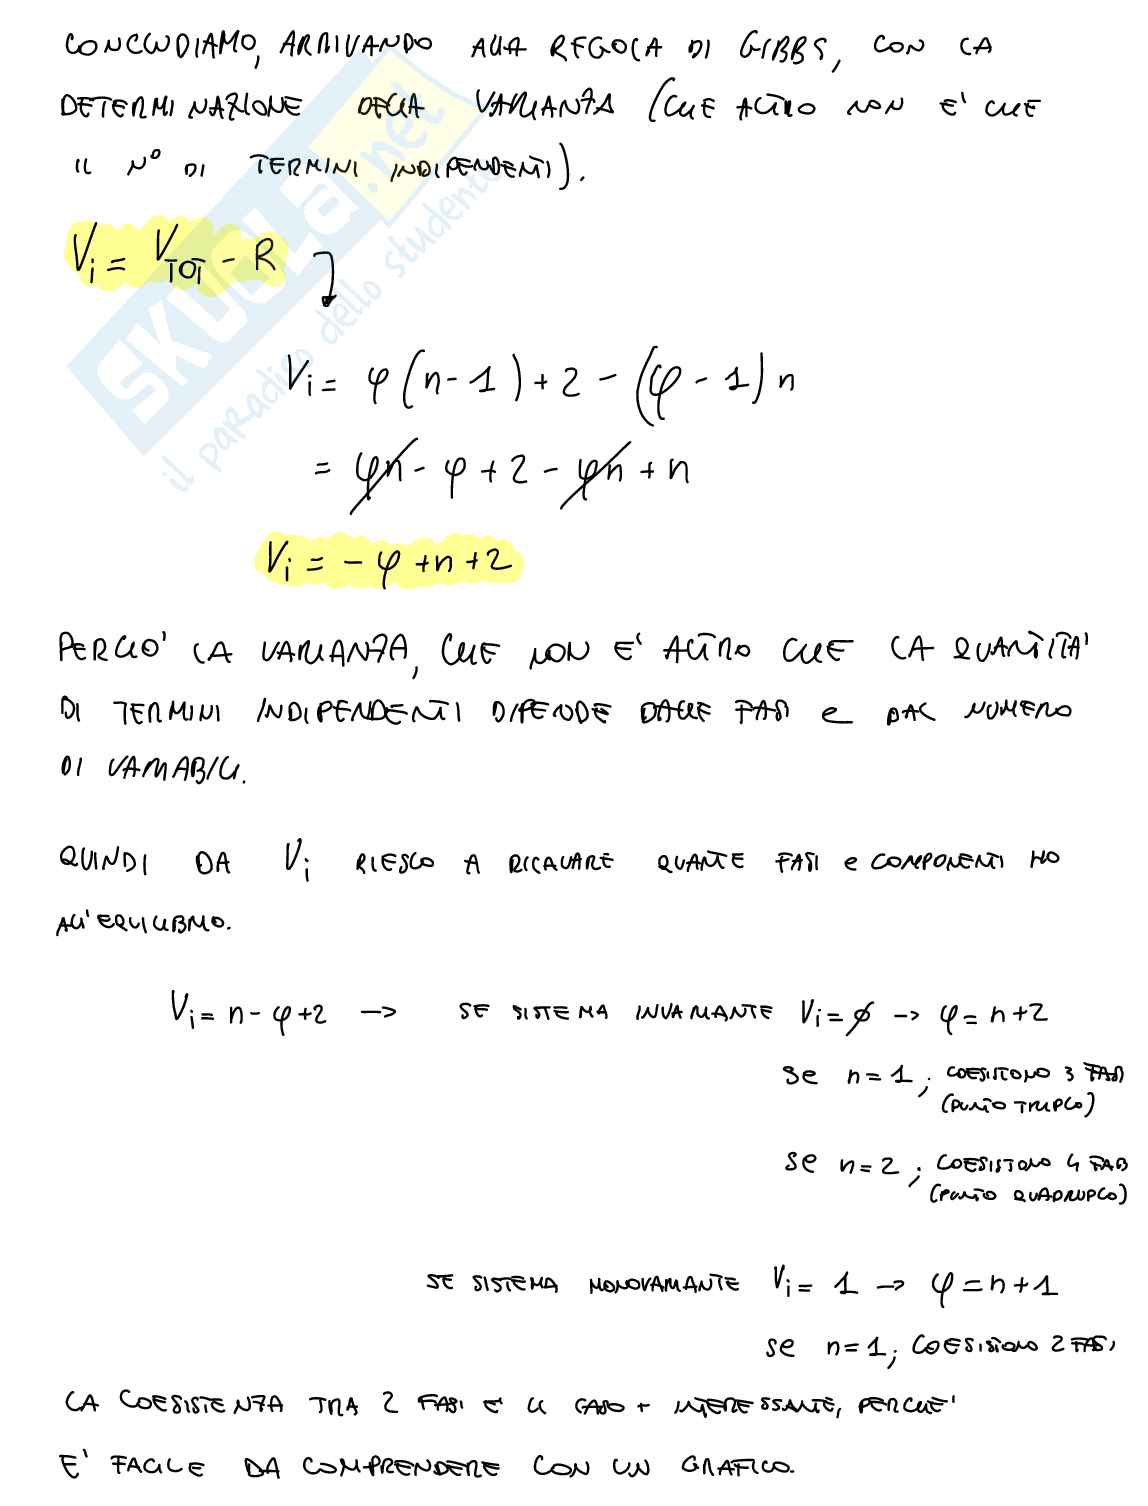 CONCLUDIAMO, ARRIVANDO ALLA REGOLA DI GIBBS, CON LA
DETERMINAZIONE DELLA VARIANZA (CHE ALTRO NON E' CHE
IL N° DI TERMINI INDIPENDENTI).
Vi = VTOT - R
Vi = φ(n-1)+2-(φ-1)n
= φn - φ + 2 - φn + n
Vi = - φ +n+2
PERCIO' LA VARIANZA, CHE NON E' ALTRO CHE LA QUANTITA'
DI TERMINI INDIPENDENTI DIPENDE DALLE FASI e DAL NUMERO
DI VARIABILI.
QUINDI DA Vi RIESCO A RICAVARE QUANTE FASI e COMPONENTI HO
ALL'EQUILIBRIO.
Vi = n - φ +2 -> SE SISTEMA INVARIANTE Vi = ø -> φ = n+2
Se n=1; COESISTONO 3 FASI
(PUNTO TRIPLO)
Se n=2; COESISTONO 4 FASI
(PUNTO QUADRUPLO)
SE SISTEMA MONOVARIANTE Vi = 1 -> φ = n+1
se n=1; COESISTONO 2 FASI
LA COESISTENZA TRA 2 FASI E' IL CASO + INTERESSANTE, PERCHE'
E' FACILE DA COMPRENDERE CON UN GRAFICO.
SKUOLA.net
il paradiso dello studente